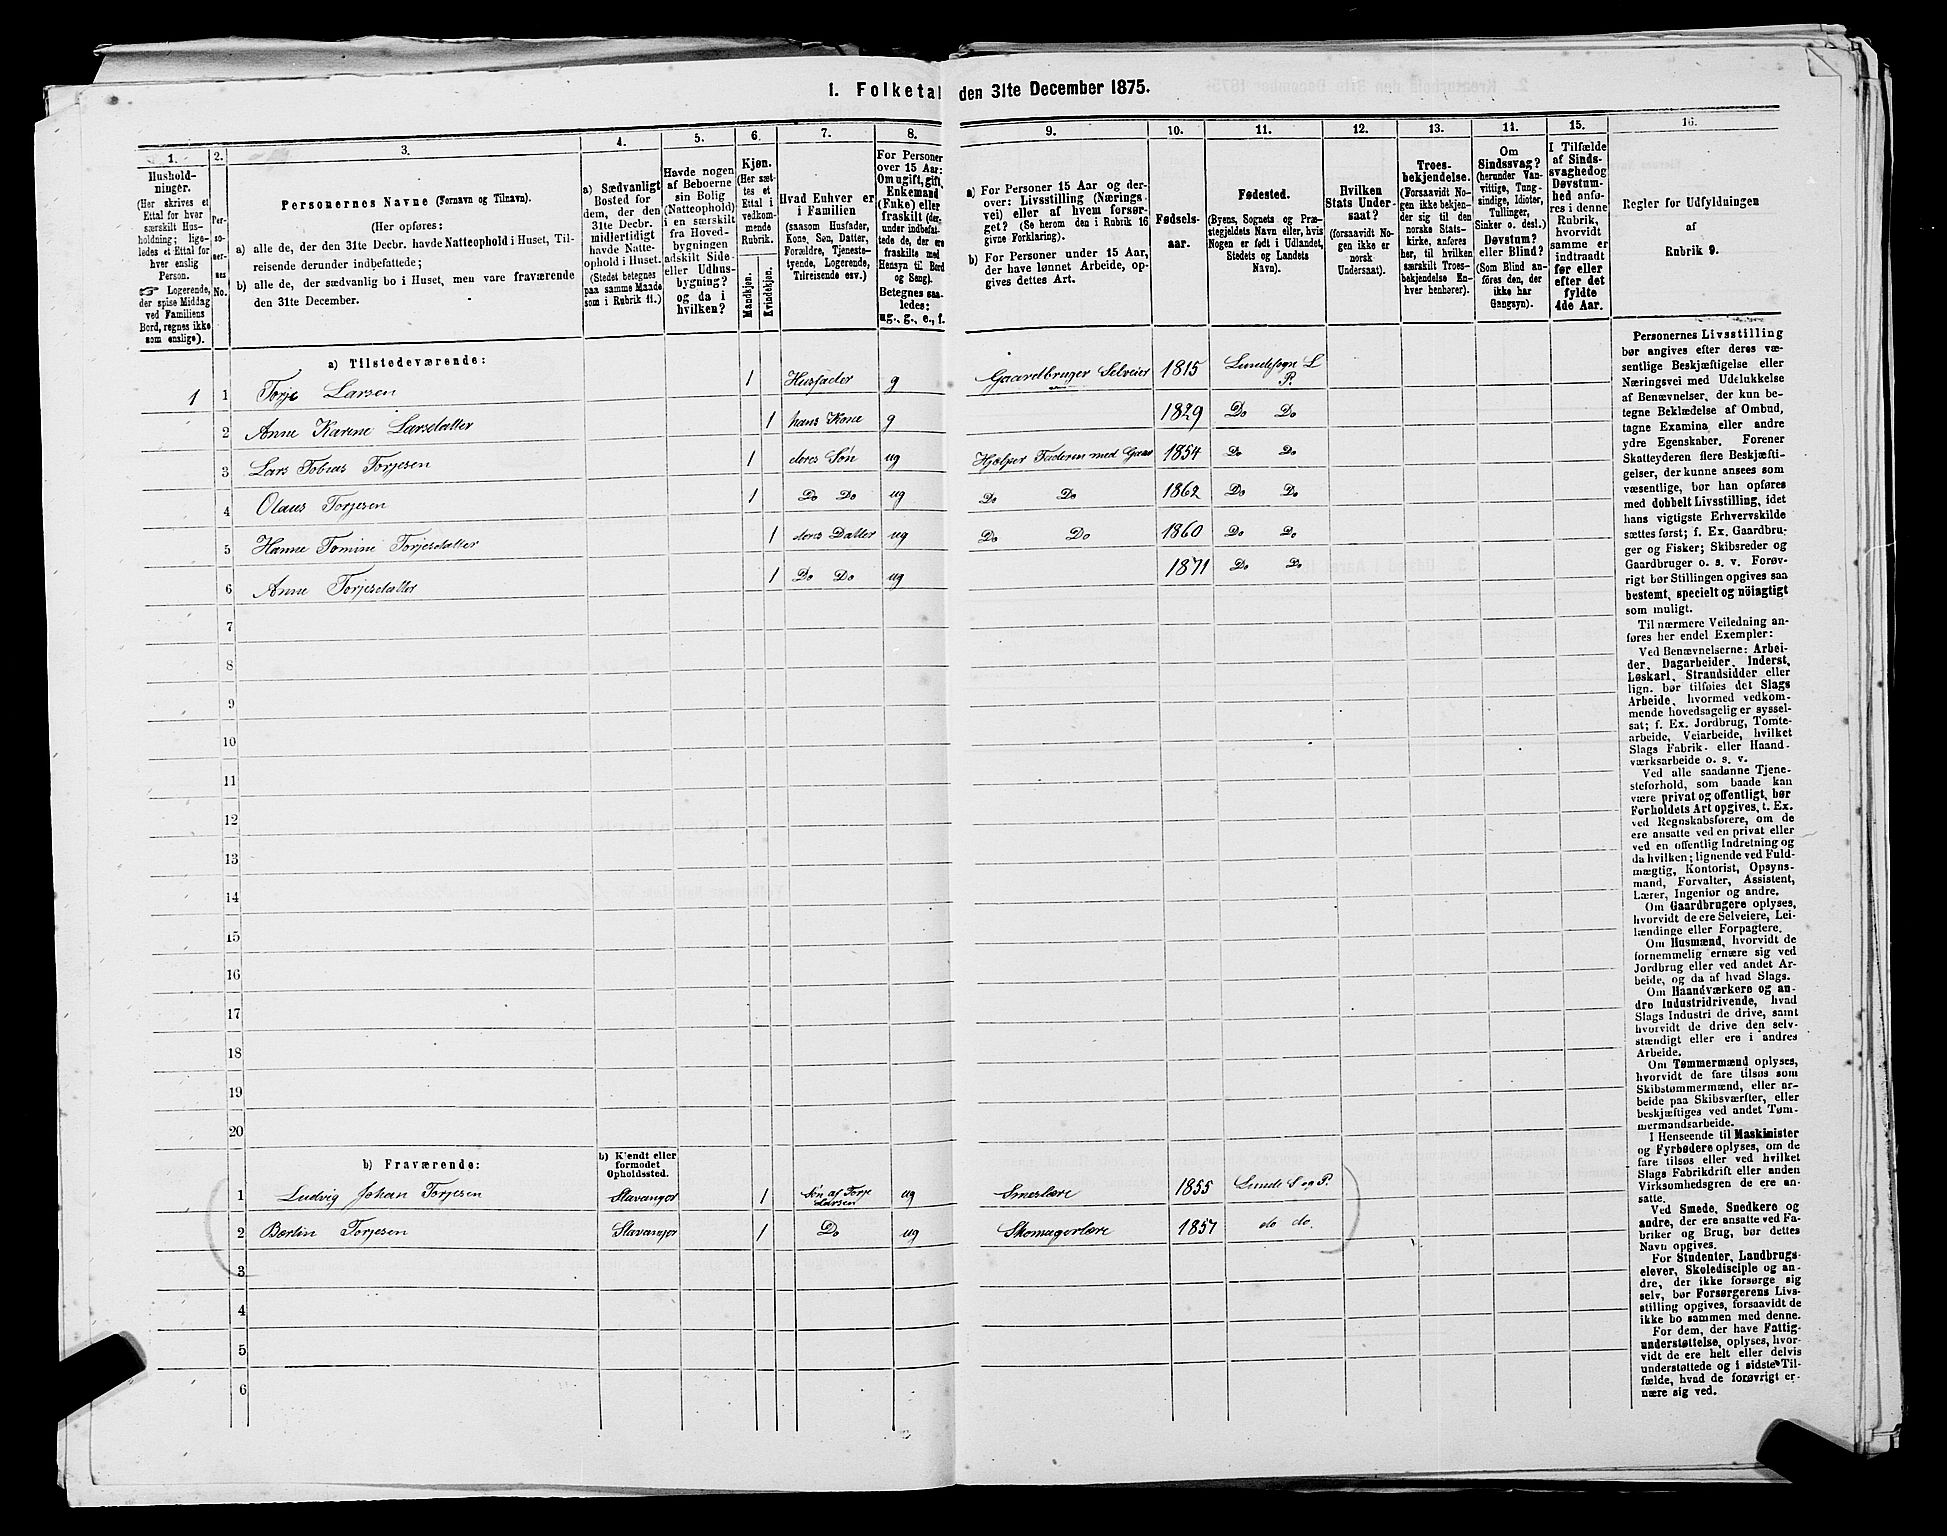 1. Folketal den 31te December 1875.
1.
Hushold-
ninger.
(Her skrives et
Ettal for hver
særskilt Hus-
holdning; lige-
ledes et Ettal for
hver enslig
Person.
☞ Logerende,
der spise Middag
ved Familiens
Bord, regnes ikke
som enslige).
2.
Per-
so-
ner-
nes
No.
3.
Personernes Navne (Fornavn og Tilnavn).
(Her opføres:
a) alle de, der den 31te Decbr. havde Natteophold i Huset, Til-
reisende derunder indbefattede;
b) alle de, der sædvanlig bo i Huset, men vare fraværende
den 31te December.
4.
a) Sædvanligt
Bosted for
dem, der den
31te Decbr.
midlertidigt
havde Natte-
ophold i Huset.
(Stedet betegnes
paa samme Maade
som i Rubrik 11.)
5.
Havde nogen
af Beboerne
sin Bolig
(Natteophold)
i en særskilt
fra Hoved-
bygningen
adskilt Side-
eller Udhus-
bygning?
og da i
hvilken?
6.
Kjøn.
(Her sæt-
tes et
Ettal i
vedkom-
mende
Rubrik.
Mandkjøn.
Kvindekjøn.
7.
Hvad Enhver er
i Familien
(saasom Husfader,
Kone, Søn, Datter,
Forældre, Tjeneste-
tyende, Logerende,
Tilreisende osv.)
8.
For Personer
over 15 Aar:
Om ugift, gift,
Enkemand
(Enke) eller
fraskilt (der-
under indbefat-
tede de, der ere
fraskilte med
Hensyn til Bord
og Seng).
Betegnes saa-
ledes:
ug., g., e., f.
9.
a) For Personer 15 Aar og der-
over: Livsstilling (Nærings-
vei) eller af hvem forsør-
get? (Se herom den i Rubrik 16
givne Forklaring).
b) For Personer under 15 Aar,
der have lønnet Arbeide, op-
gives dettes Art.
10.
Fødsels-
aar.
11.
Fødested.
(Byens, Sognets og Præ-
stegjeldets Navn eller, hvis
Nogen er født i Udlandet,
Stedets og Landets
Navn).
12.
Hvilken
Stats Under-
saat?
(forsaavidt No-
gen ikke er
norsk
Undersaat).
13.
Troes-
bekjendelse.
(Forsaavidt No-
gen ikke bekjen-
der sig til den
norske Stats-
kirke, anføres
her, til hvilken
særskilt Troes-
bekjendelse En-
hver henhører).
14.
Om
Sindssvag?
(herunder Van-
vittige, Tung-
sindige, Idioter,
Tullinger,
Sinker o. desl.)
Døvstum?
eller Blind?
(Som Blind an-
føres den, der
ikke har
Gangsyn).
15.
I Tilfælde
af Sinds-
svaghed og
Døvstum-
hed anfø-
res i denne
Rubrik,
hvorvidt
samme er
indtraadt
før eller
efter det
fyldte
4de Aar.
16.
Regler for Udfyldningen
af
Rubrik 9.
a) Tilstedeværende:
1 1 Torje Larsen 1 Husfader g Gaardbruger Selveier 1815 Lundesogn L P.
2 Anne Karine Larsdatter 1 hans Kone g 1829 Do Do
3 Lars Tobias Torjesen 1 deres Søn ug Hjelper Faderen med Gaar 1854 Do Do
4 Olaus Torjesen 1 Do Do ug Do Do 1862 Do Do
5 Hanne Tomine Torjesdatter 1 deres Datter ug Do Do 1860 Do Do
6 Anne Torjesdatter 1 Do Do ug 1871 Do Do
7
8
9
10
11
12
13
14
15
16
17
18
19
20
b) Fraværende:
b) Kjendt eller
formodet
Opholdssted.
1 Ludvig Johan Torjesen Stavanger 1 Søn af Torje Larsen ug Smeslære 1855 Lunde S og P.
2 Bertin Torjesen Stavanger 1 Do ug Skomagerlære 1857 do do.
3
4
5
6
Personernes Livsstilling
bør angives efter deres væ-
sentlige Beskjæftigelse eller
Næringsvei med Udelukkelse
af Benævnelser, der kun be-
tegne Beklædelse af Ombud,
tagne Examina eller andre
ydre Egenskaber. Forener
Skatteyderen flere Beskjæfti-
gelser, der kunne ansees som
væsentlige, bør han opføres
med dobbelt Livsstilling, idet
hans vigtigste Erhvervskilde
sættes først; f. Ex. Gaardbru-
ger og Fisker; Skibsreder og
Gaardbruger o. s. v. Forøv-
rigt bør Stillingen opgives saa
bestemt, specielt og nöiagtigt
som muligt.
Til nærmere Veiledning an-
føres her endel Exempler:
Ved Benævnelserne: Arbei-
der, Dagarbeider, Inderst,
Løskarl, Strandsidder eller
lign. bør tilføies det Slags
Arbeide, hvormed vedkom-
mende hovedsagelig er syssel-
sat; f. Ex. Jordbrug, Tomte-
arbeide, Veiarbeide, hvilket
Slags Fabrik- eller Haand-
værksarbeide o. s. v.
Ved alle saadanne Tjene-
steforhold, som baade kan
være privat og offentligt, bør
Forholdets Art opgives, t. Ex.
ved Regnskabsførere, om de
ere ansatte ved en privat eller
ved en offentlig Indretning og
da hvilken; lignende ved Fuld-
mægtig, Kontorist, Opsyns-
mand, Forvalter, Assistent,
Lærer, Ingeniør og andre.
Om Gaardbrugere oplyses,
hvorvidt de ere Selveiere, Lei-
lændinge eller Forpagtere.
Om Husmænd, hvorvidt de
fornemmelig ernære sig ved
Jordbrug eller ved andet Ar-
beide, og da af hvad Slags.
Om Haandværkere og an-
dre Industridrivende, hvad
Slags Industri de drive, samt
hvorvidt de drive den selv-
stændigt eller ere i andres
Arbeide.
Om Tømmermænd oplyses,
hvorvidt de fare tilsøs som
Skibstømmermænd, eller ar-
beide paa Skibsværfter, eller
beskjæftiges ved andet Tøm-
mermandsarbeide.
I Henseende til Maskinister
og Fyrbødere oplyses, om de
fare tilsøs eller ved hvilket
Slags Fabrikdrift eller anden
Virksomhedsgren de ere an-
satte.
Ved Smede, Snedkere og
andre, der ere ansatte ved Fa-
briker og Brug, bør dettes
Navn opgives.
For Studenter, Landbrugs-
elever, Skoledisciple og an-
dre, der ikke forsørge sig
selv, bør Forsørgerens Livs-
stilling opgives, forsaavidt de
ikke bo sammen med denne.
For dem, der have Fattig-
understøttelse, oplyses, hvor-
vidt de ere helt eller delvis
understøttede og i sidste Til-
fælde, hvad de forøvrigt er-
nære sig ved.